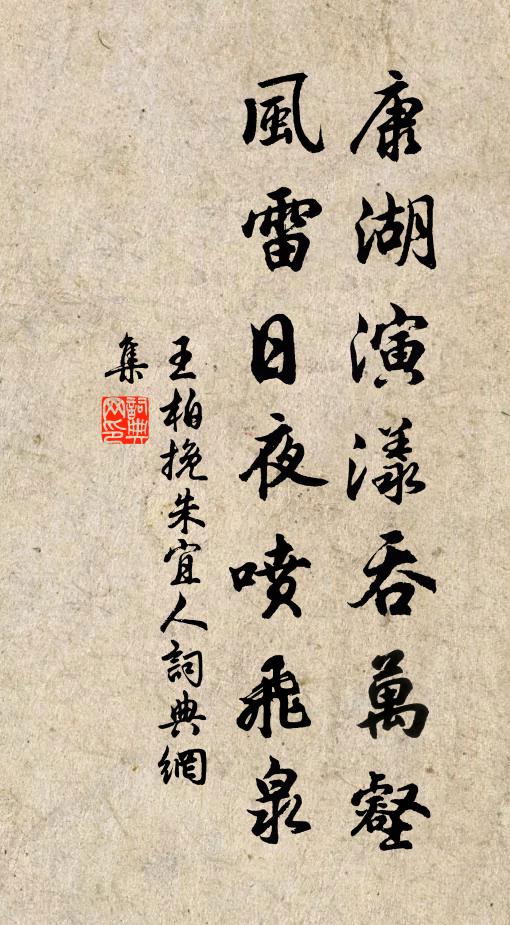 康湖演漾吞萬壑
風雷日夜噴飛泉
王柏挽朱宜人詞典網
集
詞典網印